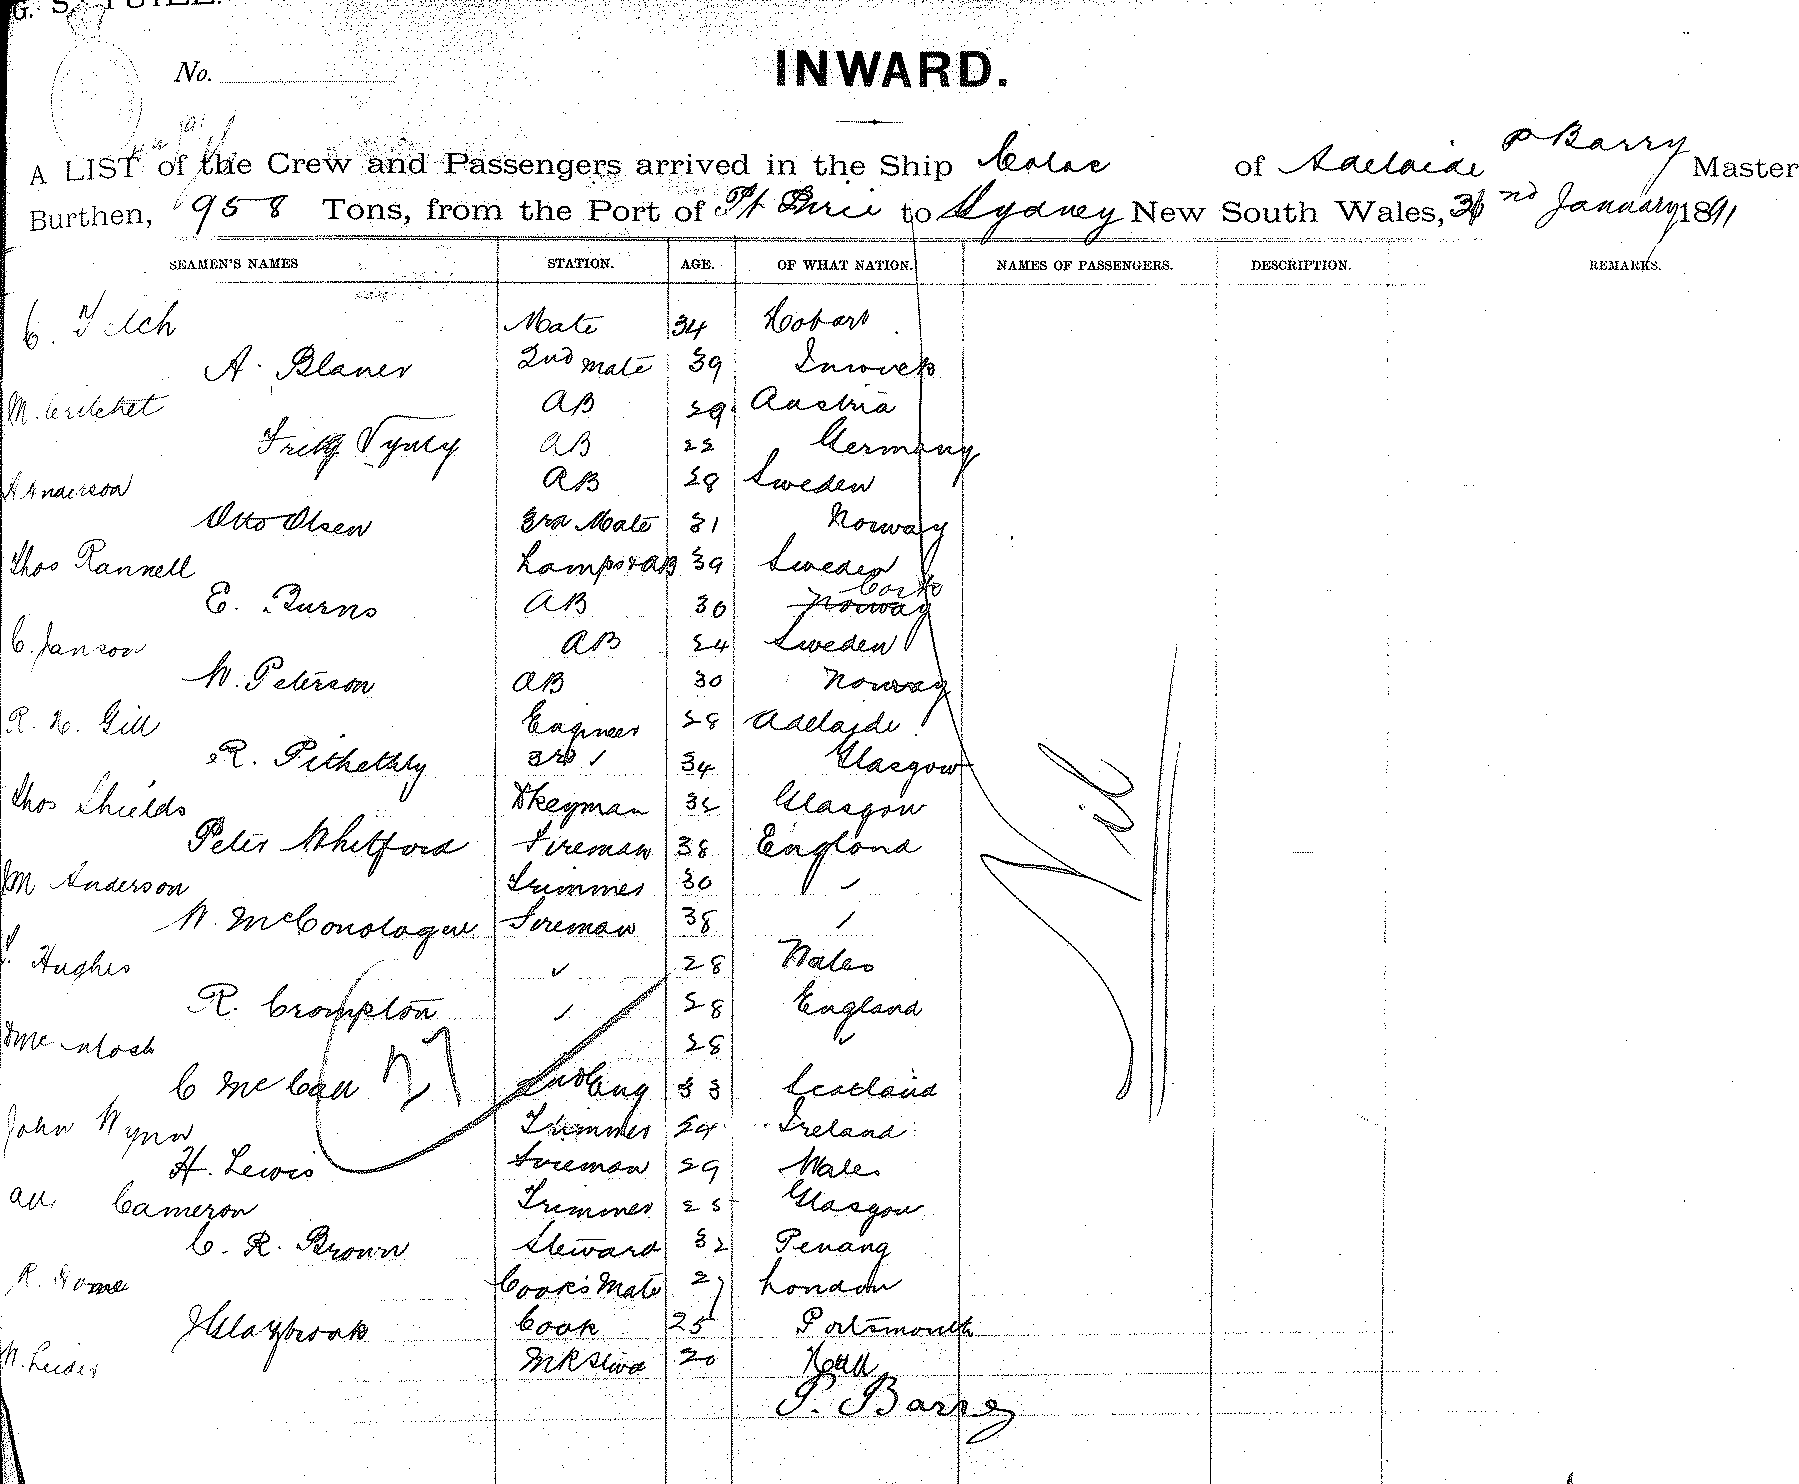 G. S. YUILL.
No.
INWARD.
P Barry
A LIST of the Crew and Passengers arrived in the Ship Colac of Adelaide Master
Burthen, 958 Tons, from the Port of Pt Pirie to Sydney New South Wales, nd January 1891
SEAMEN'S NAMES STATION. AGE. OF WHAT NATION. NAMES OF PASSENGERS. DESCRIPTION. REMARKS.
C. Mate 34 Hobart
A. 2nd Mate 39
M. AB 29 Austria
Fritz AB 22 Germany
Anderson AB 28 Sweden
Otto Olsen 3rd Mate 31 Norway
Thos Rannell Lamps & AB 39 Sweden
Cork
E. Burns AB 30 Norway
C. Janson AB 24 Sweden
W. Peterson AB 30 Norway
R. H. Gill Engineer 28 Adelaide
R. Pithethly 3rd 34 Glasgow
Thos Shields Dkeyman Glasgow
Peter Whitford Fireman 38 England
Anderson Trimmer 30
W. McConologue Fireman 38
Hughes 28 Wales
R. Crompton 28 England
28
C McCall 27 2nd Eng 33 Scotland
John Wynn Trimmer 24 Ireland
H. Lewis Fireman 29 Wales
Cameron Trimmer 25 Glasgow
C. R. Brown Steward 32 Penang
R. Cook's Mate 27 London
J Claybrook Cook 25 Portsmouth
W. 20 Hull
Nil
P. Barry